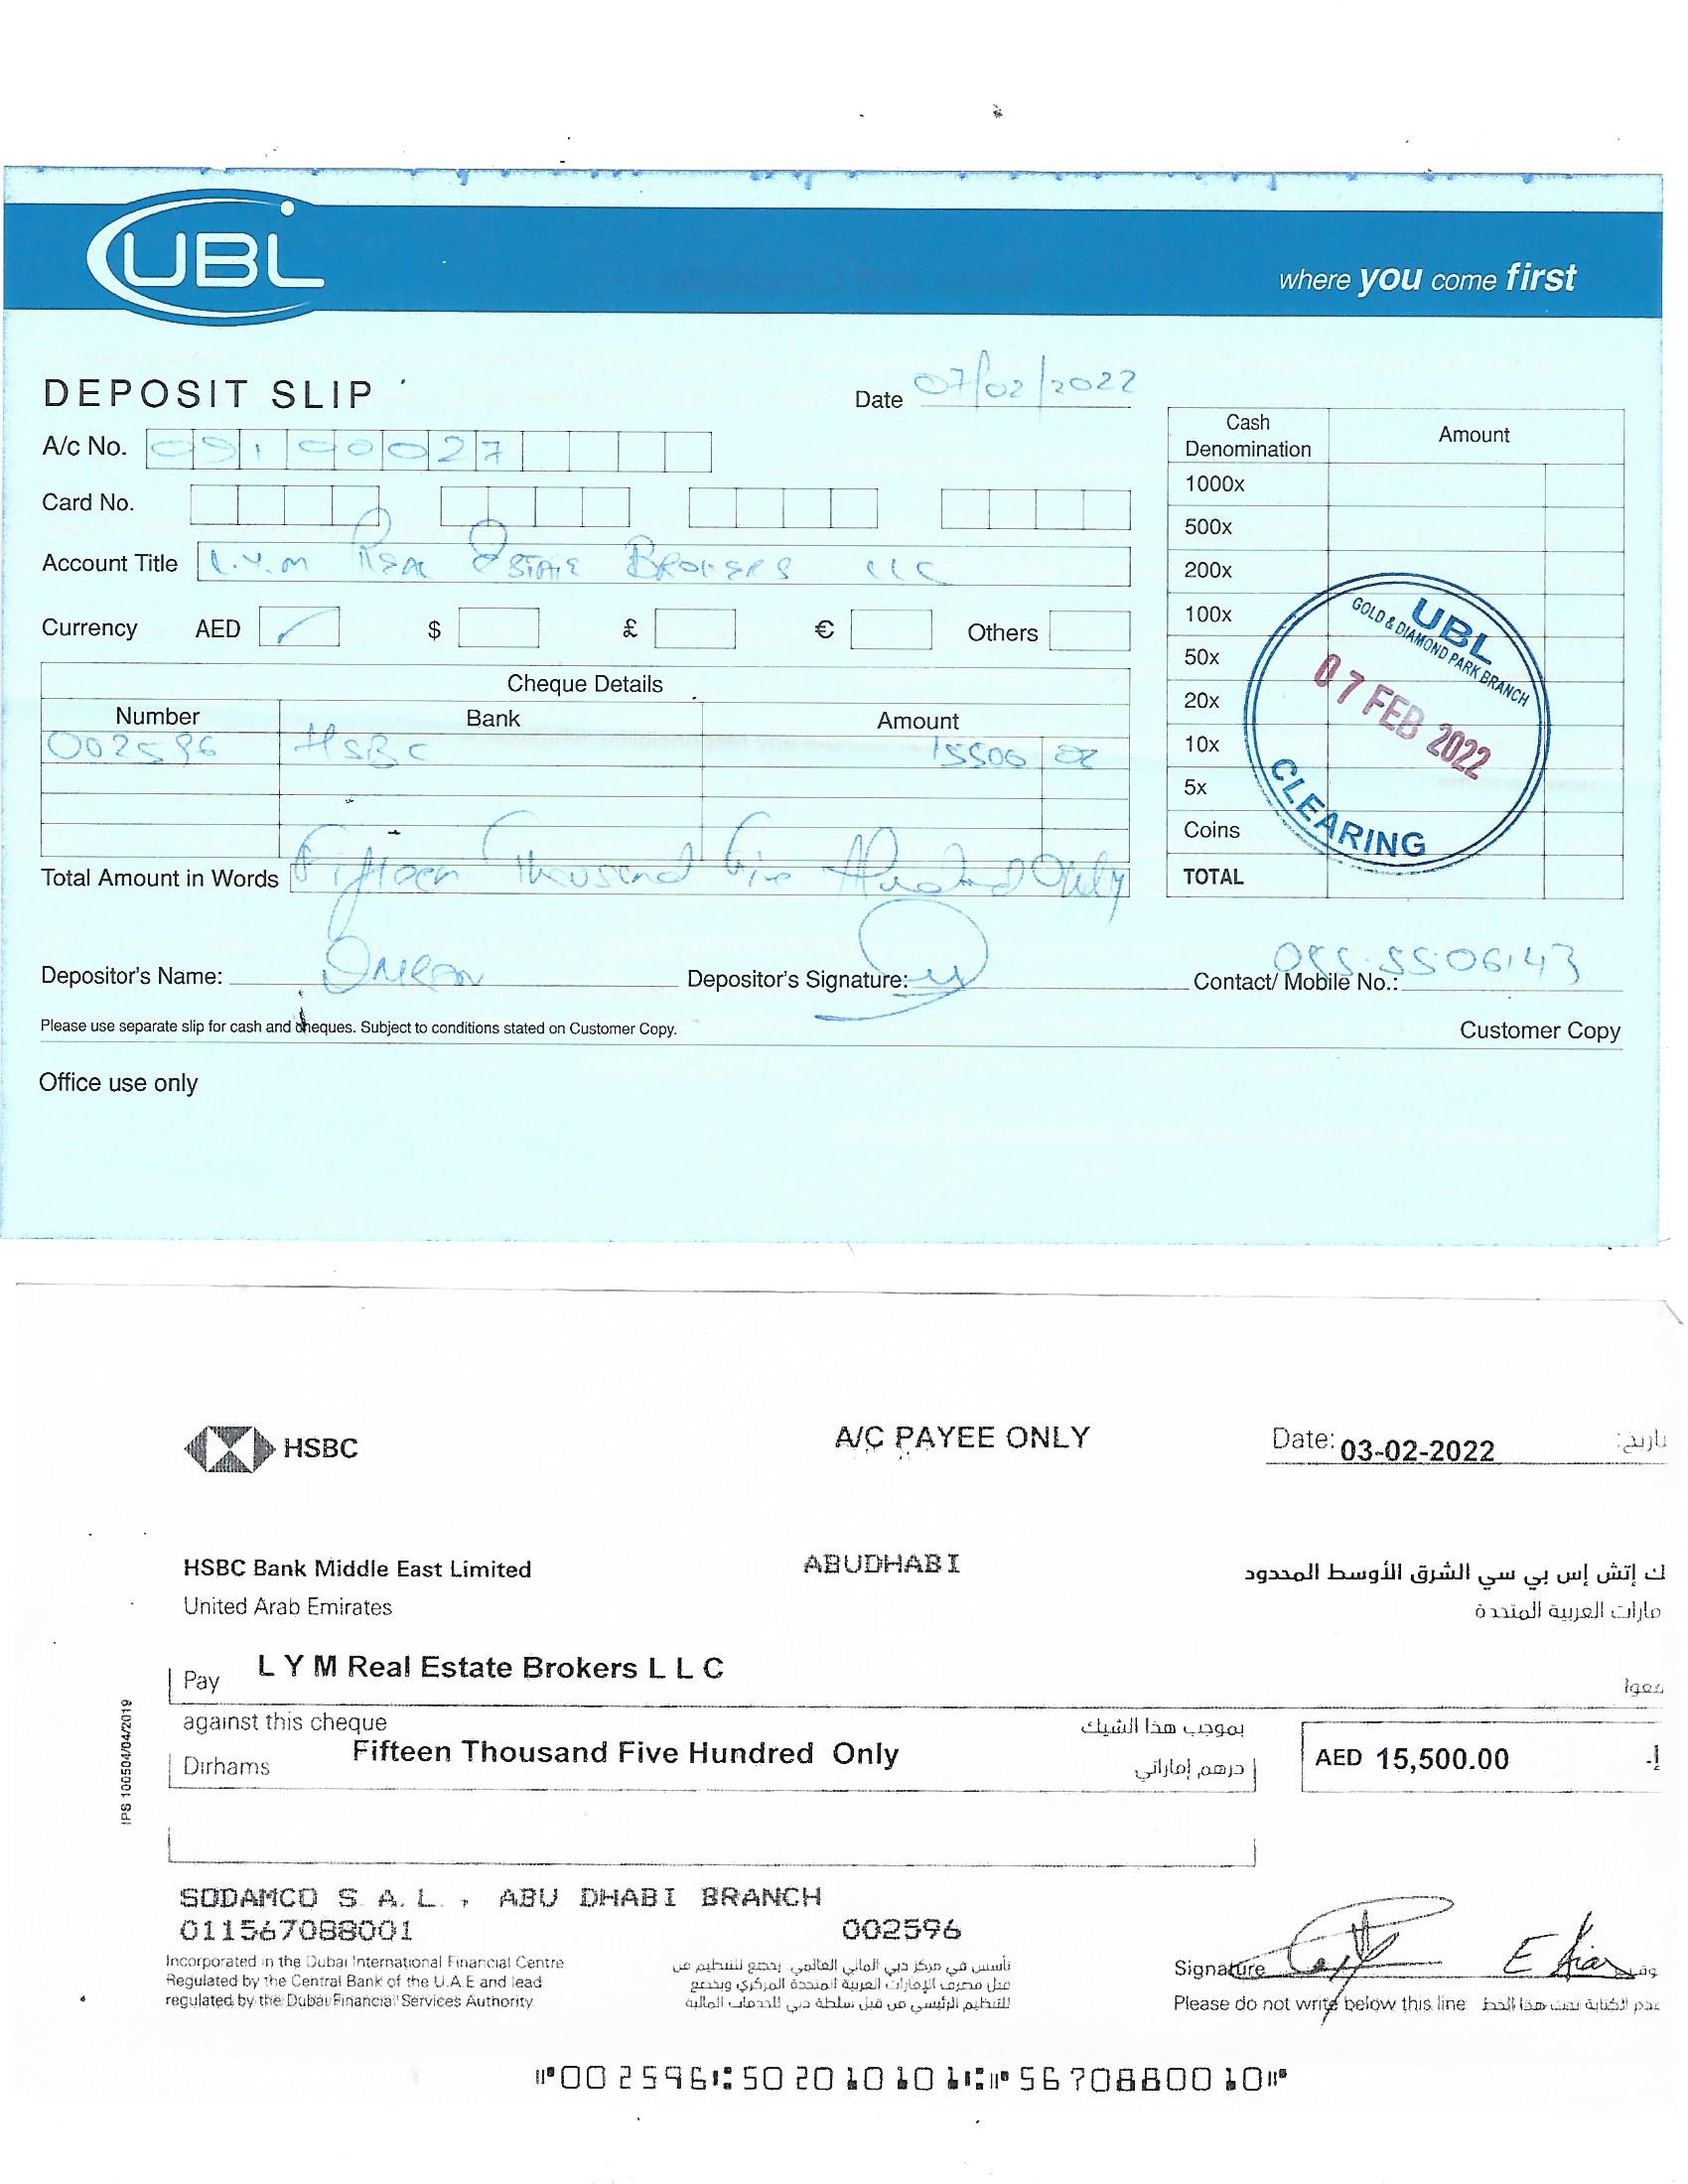 UBL
where you come first
DEPOSIT SLIP
Date 07/02/2022
A/c No. 09100027
Card No.
Account Title L.Y.M REAL ESTATE BROKERS LLC
Currency AED $ £ € Others
Cheque Details
Number Bank Amount
002596 HSBC 15500 00
Total Amount in Words Fifteen Thousand Five Hundred Only
Cash Denomination Amount
1000x
500x
200x
100x
50x
20x
10x
5x
Coins
TOTAL
UBL
GOLD & DIAMOND PARK BRANCH
07 FEB 2022
CLEARING
Depositor's Name: IMRAN
Depositor's Signature:
Contact/ Mobile No.: 055-5506143
Please use separate slip for cash and cheques. Subject to conditions stated on Customer Copy.
Customer Copy
Office use only
HSBC
A/C PAYEE ONLY
Date: 03-02-2022 تاريخ:
HSBC Bank Middle East Limited
ABUDHABI
ك إتش إس بي سي الشرق الأوسط المحدود
United Arab Emirates
مارات العربية المتحدة
Pay L Y M Real Estate Brokers L L C
against this cheque بموجب هذا الشيك
Dirhams Fifteen Thousand Five Hundred Only درهم إماراتي
AED 15,500.00
IPS 100504/04/2019
SODAMCO S. A. L. , ABU DHABI BRANCH
011567088001 002596
Incorporated in the Dubai International Financial Centre
Regulated by the Central Bank of the U.A.E and lead
regulated by the Dubai Financial Services Authority
تأسس في مركز دبي المالي العالمي. يخضع للتنظيم من
قبل مصرف الإمارات العربية المتحدة المركزي ويخضع
للتنظيم الرئيسي من قبل سلطة دبي للخدمات المالية
Signature
Please do not write below this line عدم الكتابة تحت هذا الخط
⑈002596⑆502010101⑆⑈567088001⑈